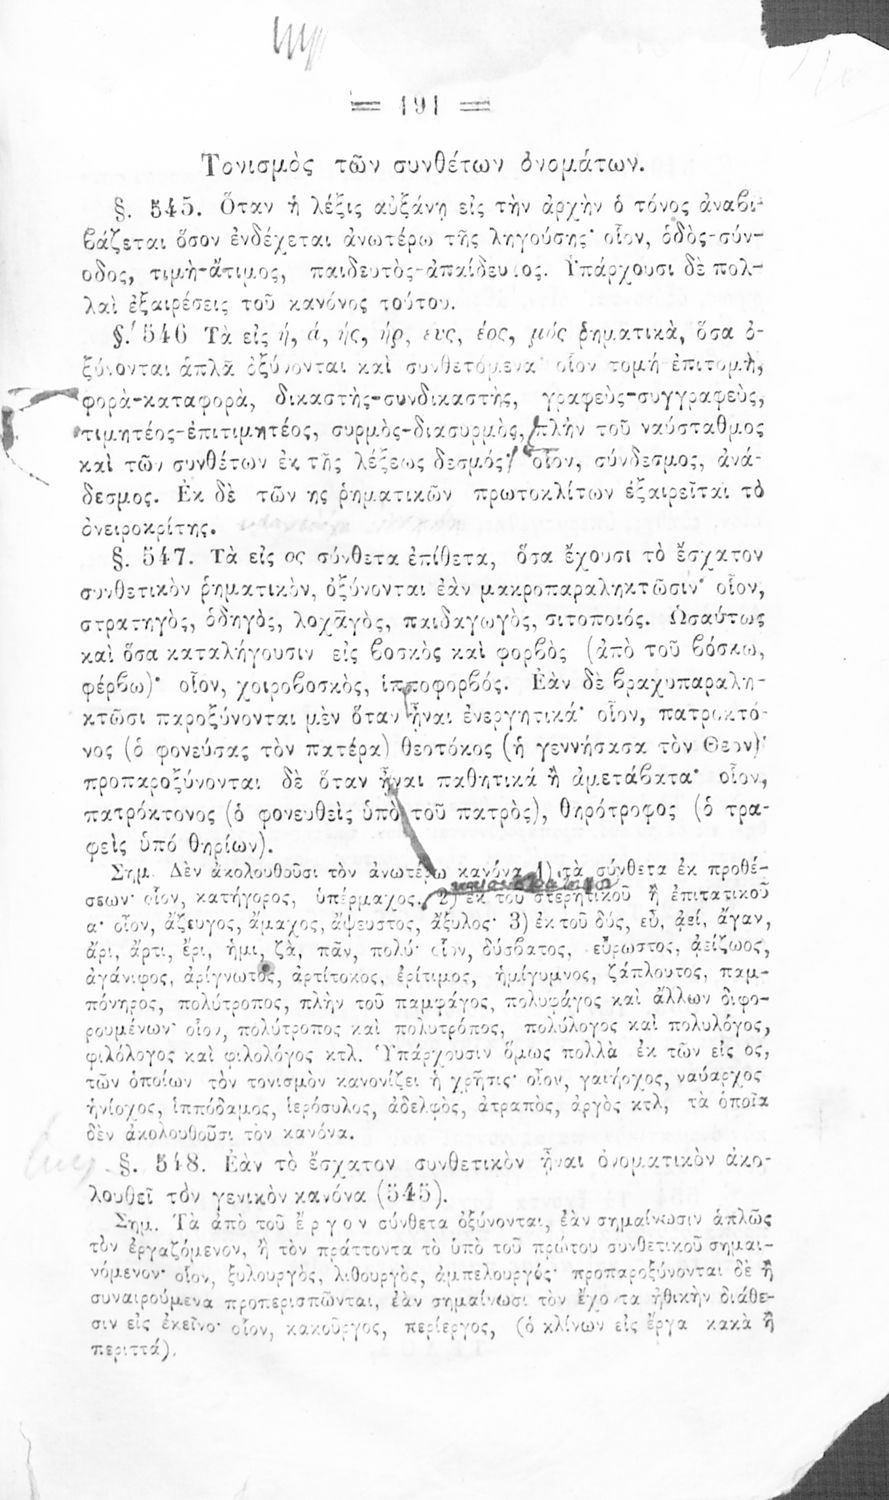 ═ 191 ═
Τονισμὸς τῶν συνθέτων ὀνομάτων.
§. 545. Ὅταν ἡ λέξις αὐξάνῃ εἰς τὴν ἀρχὴν ὁ τόνος ἀναβι-
βάζεται ὅσον ἐνδέχεται ἀνωτέρω τῆς ληγούσης· οἷον, ὁδὸς-σύν-
οδος, τιμὴ-ἄτιμος, παιδευτὸς-ἀπαίδευτος. Ὑπάρχουσι δὲ πολ-
λαὶ ἐξαιρέσεις τοῦ κανόνος τούτου.
§. 546 Τὰ εἰς ή, ά, ής, ήρ, ευς, έος, μός ῥηματικὰ, ὅσα ὀ-
ξύνονται ἁπλᾶ ὀξύνονται καὶ συνθετόμενα· οἷον τομή-ἐπιτομὴ,
φορὰ-καταφορὰ, δικαστὴς-συνδικαστὴς, γραφεὺς-συγγραφεὺς,
τιμητέος-ἐπιτιμητέος, συρμὸς-διασυρμὸς, πλὴν τοῦ ναύσταθμος
καὶ τῶν συνθέτων ἐκ τῆς λέξεως δεσμός· οἷον, σύνδεσμος, ἀνά-
δεσμος. Ἐκ δὲ τῶν ης ῥηματικῶν πρωτοκλίτων ἐξαιρεῖται τὸ
ὀνειροκρίτης.
§. 547. Τὰ εἰς ος σύνθετα ἐπίθετα, ὅσα ἔχουσι τὸ ἔσχατον
συνθετικὸν ῥηματικὸν, ὀξύνονται ἐὰν μακροπαραληκτῶσιν· οἷον,
στρατηγὸς, ὁδηγὸς, λοχᾱγὸς, παιδαγωγὸς, σιτοποιός. Ὡσαύτως
καὶ ὅσα καταλήγουσιν εἰς βοσκὸς καὶ φορβὸς (ἀπὸ τοῦ βόσκω,
φέρβω)· οἷον, χοιροβοσκὸς, ἱπποφορβός. Ἐὰν δὲ βραχυπαραλη-
κτῶσι παροξύνονται μὲν ὅταν ἦναι ἐνεργητικά· οἷον, πατροκτό-
νος (ὁ φονεύσας τὸν πατέρα) θεοτόκος (ἡ γεννήσασα τὸν Θεὸν)·
προπαροξύνονται δὲ ὅταν ἦναι παθητικά ἢ ἀμετάβατα· οἷον,
πατρόκτονος (ὁ φονευθεὶς ὑπὸ τοῦ πατρὸς), θηρότροφος (ὁ τρα-
φεὶς ὑπό θηρίων).
Σημ. Δὲν ἀκολουθοῦσι τὸν ἀνωτέρω κανόνα 1) τὰ σύνθετα ἐκ προθέ-
σεων· οἷον, κατήγορος, ὑπέρμαχος. 2) ἐκ τοῦ στερητικοῦ ἢ ἐπιτατικοῦ
α· οἷον, ἄζευγος, ἄμαχος, ἄψευστος, ἄξυλος· 3) ἐκ τοῦ δύς, εὖ, ἀεί, ἄγαν,
ἄρι, ἄρτι, ἔρι, ἡμι, ζὰ, πᾶν, πολύ· οἷον, δύσβατος, εὔρωστος, ἀείζωος,
ἀγάνιφος, ἀρίγνωτος, ἀρτίτοκος, ἐρίτιμος, ἡμίγυμνος, ζάπλουτος, παμ-
πόνηρος, πολύτροπος, πλὴν τοῦ παμφάγος, πολυφάγος καὶ ἄλλων διφο-
ρουμένων· οἷον, πολύτροπος καὶ πολυτρόπος, πολύλογος καὶ πολυλόγος,
φιλόλογος καὶ φιλολόγος κτλ. Ὑπάρχουσιν ὅμως πολλὰ ἐκ τῶν εἰς ος,
τῶν ὁποίων τὸν τονισμὸν κανονίζει ἡ χρῆσις· οἷον, γαιήοχος, ναύαρχος
ἡνίοχος, ἱππόδαμος, ἱερόσυλος, ἀδελφὸς, ἀτραπὸς, ἀργὸς κτλ, τὰ ὁποῖα
δὲν ἀκολουθοῦσι τὸν κανόνα.
§. 548. Ἐὰν τὸ ἔσχατον συνθετικὸν ἦναι ὀνοματικὸν ἀκο-
λουθεῖ τὸν γενικὸν κανόνα (545).
Σημ. Τὰ ἀπὸ τοῦ ἔργον σύνθετα ὀξύνονται, ἐὰν σημαίνωσιν ἁπλῶς
τὸν ἐργαζόμενον, ἢ τὸν πράττοντα τὸ ὑπὸ τοῦ πρώτου συνθετικοῦ σημαι-
νόμενον· οἷον, ξυλουργὸς, λιθουργὸς, ἀμπελουργός· προπαροξύνονται δὲ ἢ
συναιρούμενα προπερισπῶνται, ἐὰν σημαίνωσι τὸν ἔχοντα ἠθικὴν διάθε-
σιν εἰς ἐκεῖνο· οἷον, κακοῦργος, περίεργος, (ὁ κλίνων εἰς ἔργα κακὰ ἢ
περιττά).